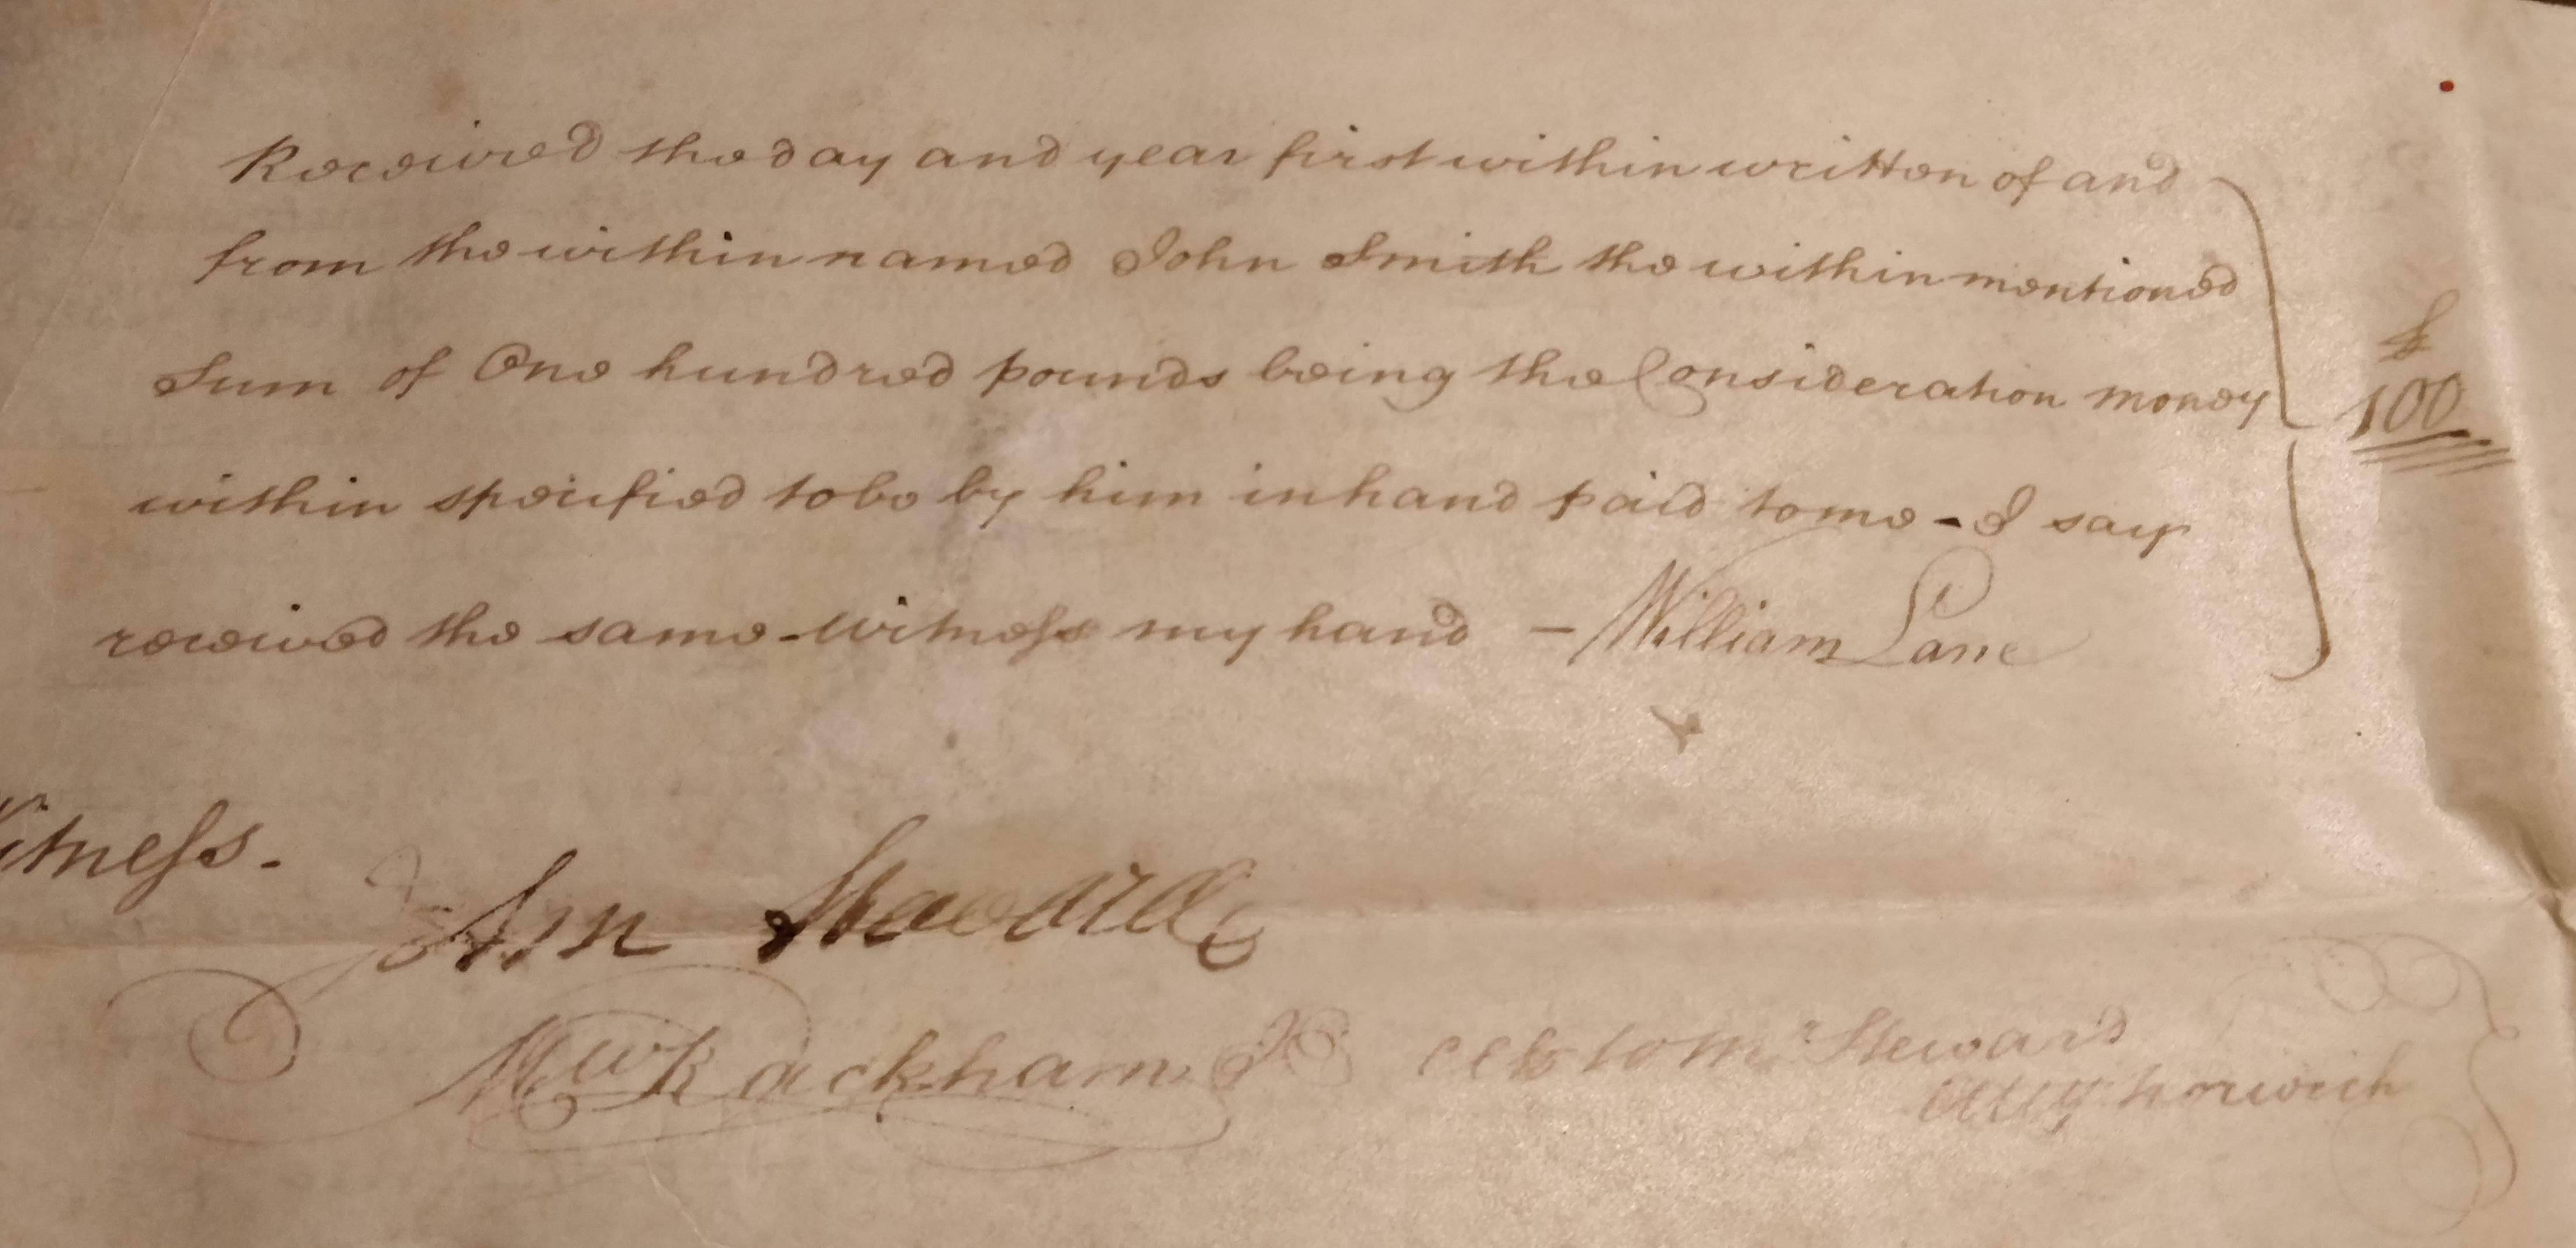 Received the day and year first within written of and
from the within named John Smith the within mentioned
Sum of One hundred pounds being the Consideration money
within specified to be by him in hand paid to me - I say
received the same - witness my hand - William Lane
£
100
itness.
John Steward
Mw Rackham
Clk to Mr Steward
Atty Norwich